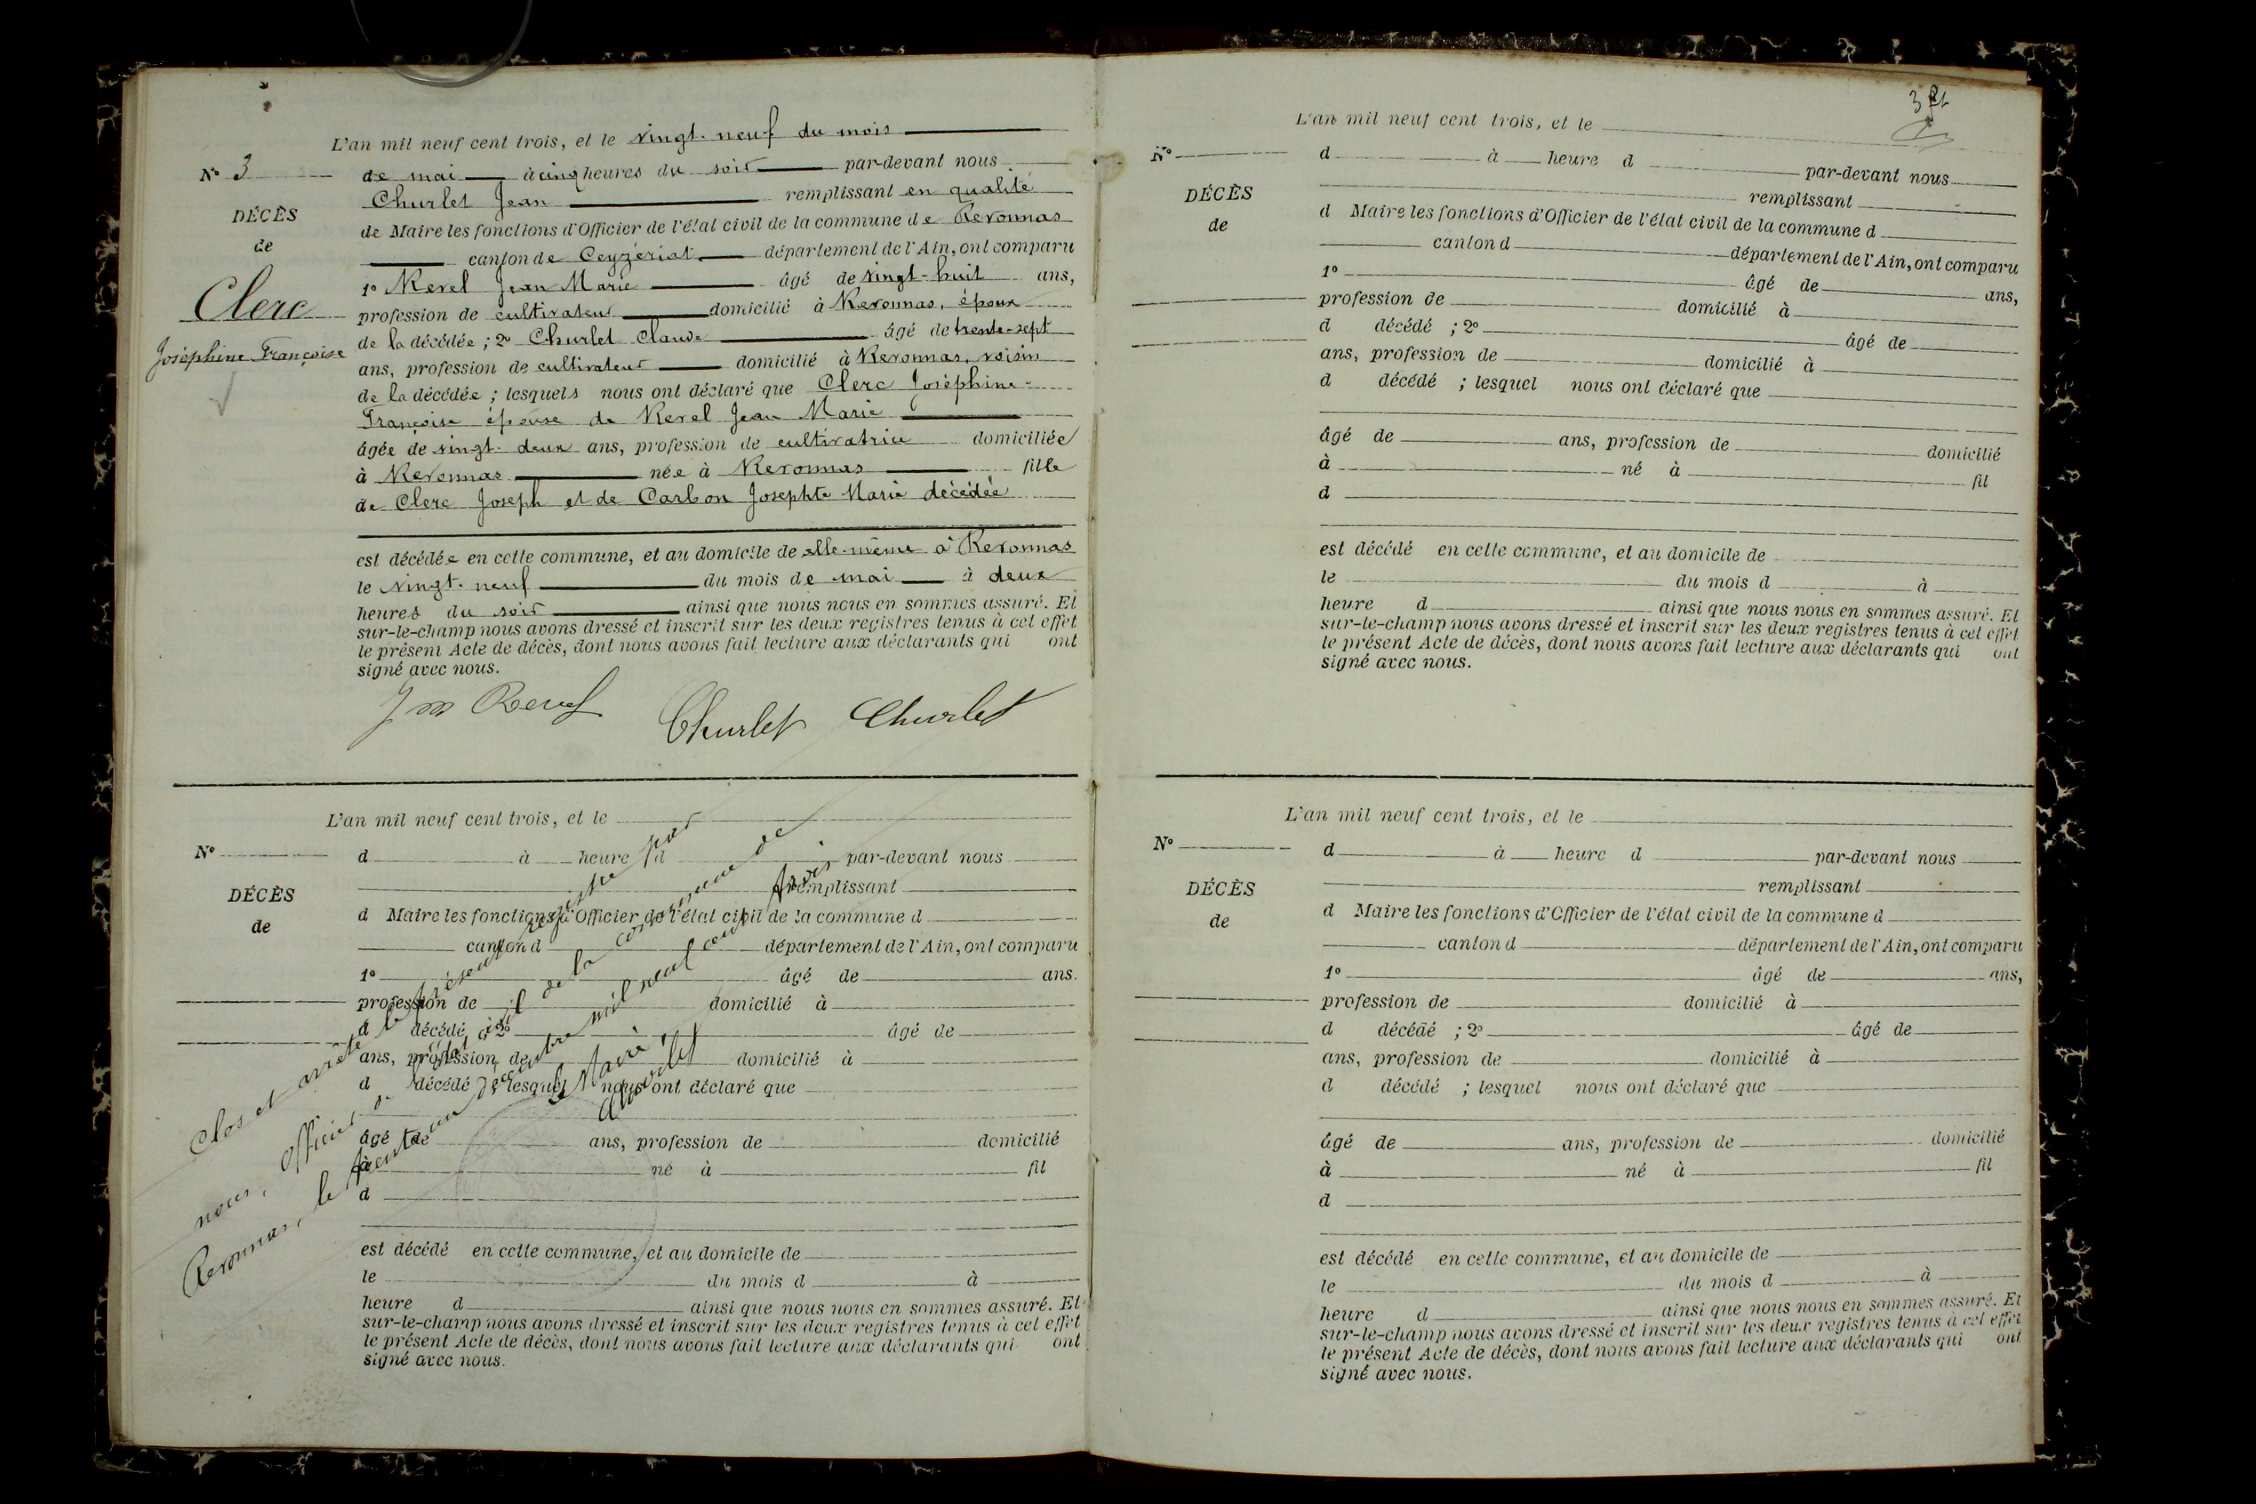 L'an mil neuf cent trois, et le vingt-neuf du mois
N° 3
de mai à cinq heures du soir par-devant nous
Churlet Jean remplissant en qualité
DÉCÈS
de Maire les fonctions d'Officier de l'état civil de la commune de Revonnas
de
canton de Ceyzériat département de l'Ain, ont comparu
1° Revel Jean Marie âgé de vingt-huit ans,
Clerc
profession de cultivateur domicilié à Revonnas, époux
de la décédée ; 2° Churlet Claude âgé de trente-sept
Joséphine Françoise
ans, profession de cultivateur domicilié à Revonnas, voisin
de la décédée ; lesquels nous ont déclaré que Clerc Joséphine-
Françoise épouse de Revel Jean Marie
âgée de vingt-deux ans, profession de cultivatrice domiciliée
à Revonnas née à Revonnas fille
de Clerc Joseph et de Carbon Josephte Marie décédée
est décédée en cette commune, et au domicile de elle-même à Revonnas
le vingt-neuf du mois de mai à deux
heures du soir ainsi que nous nous en sommes assuré. Et
sur-le-champ nous avons dressé et inscrit sur les deux registres tenus à cet effet
le présent Acte de décès, dont nous avons fait lecture aux déclarants qui ont
signé avec nous.
J M Revel Churlet Churlet
L'an mil neuf cent trois, et le
N°
d à heure d par-devant nous
remplissant
DÉCÈS
d Maire les fonctions d'Officier de l'état civil de la commune d
de
canton d département de l'Ain, ont comparu
1° âgé de ans.
profession de domicilié à
d décédé ; 2° âgé de
ans, profession de domicilié à
d décédé ; lesquel nous ont déclaré que
âgé de ans, profession de domicilié
à né à fil
d
est décédé en cette commune, et au domicile de
le du mois d à
heure d ainsi que nous nous en sommes assuré. Et
sur-le-champ nous avons dressé et inscrit sur les deux registres tenus à cet effet
le présent Acte de décès, dont nous avons fait lecture aux déclarants qui ont
signé avec nous.
Clos et arrêté le présent registre par
nous, officier de l'état civil de la commune de
Revonnas, le trente un décembre mil neuf cent trois
Le Maire,
Churlet
3
L'an mil neuf cent trois, et le
N°
d à heure d par-devant nous
remplissant
DÉCÈS
d Maire les fonctions d'Officier de l'état civil de la commune d
de
canton d département de l'Ain, ont comparu
1° âgé de ans,
profession de domicilié à
d décédé ; 2° âgé de
ans, profession de domicilié à
d décédé ; lesquel nous ont déclaré que
âgé de ans, profession de domicilié
à né à fil
d
est décédé en cette commune, et au domicile de
le du mois d à
heure d ainsi que nous nous en sommes assuré. Et
sur-le-champ nous avons dressé et inscrit sur les deux registres tenus à cet effet
le présent Acte de décès, dont nous avons fait lecture aux déclarants qui ont
signé avec nous.
L'an mil neuf cent trois, et le
N°
d à heure d par-devant nous
remplissant
DÉCÈS
d Maire les fonctions d'Officier de l'état civil de la commune d
de
canton d département de l'Ain, ont comparu
1° âgé de ans,
profession de domicilié à
d décédé ; 2° âgé de
ans, profession de domicilié à
d décédé ; lesquel nous ont déclaré que
âgé de ans, profession de domicilié
à né à fil
d
est décédé en cette commune, et au domicile de
le du mois d à
heure d ainsi que nous nous en sommes assuré. Et
sur-le-champ nous avons dressé et inscrit sur les deux registres tenus à cet effet
le présent Acte de décès, dont nous avons fait lecture aux déclarants qui ont
signé avec nous.